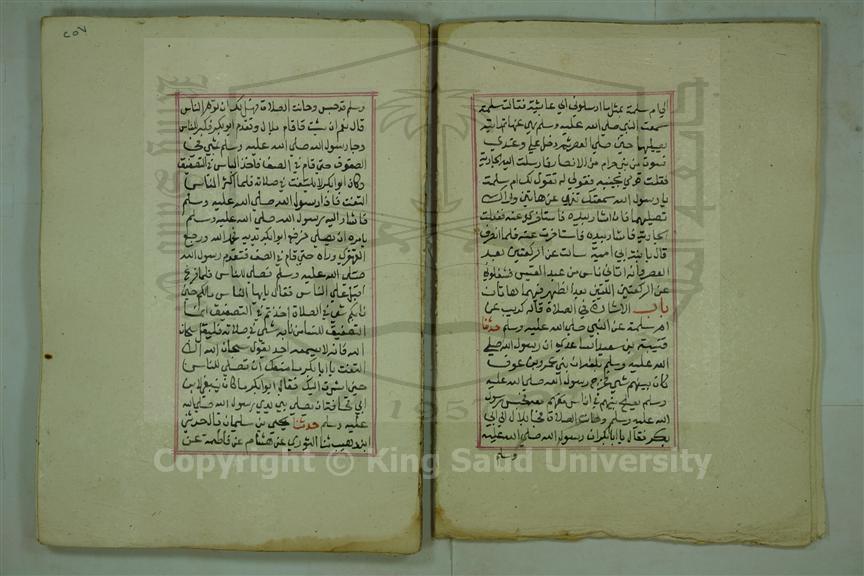 الي ام سلمة بمثل ما ارسلوني الي عايشة فقالت ام سلمة
سمعت النبي صلي الله عليه وسلم نهي عنها ثم رايته
يصليهما حين صلي العصر ثم دخل علي وعندي
نسوة من بني حرام من الانصار فارسلت اليه الجارية
فقلت قومي بجنبه فقولي له تقول لك ام سلمة
يا رسول الله سمعتك تنهي عن هاتين واراك
تصليهما فان اشار بيده فاستاخري عنه ففعلت
الجارية فاشار بيده فاستاخرت عنه فلما انصرف
قال يا بنت ابي امية سالت عن الركعتين بعد
العصر وانه اتاني ناس من عبد القيس فشغلوني
عن الركعتين اللتين بعد الظهر فهما هاتان
باب الاشارة في الصلاة قاله كريب عن
ام سلمة عن النبي صلي الله عليه وسلم حدثنا
قتيبة بن سعيد ان رسول الله صلي
الله عليه وسلم بلغه ان بني عمرو بن عوف
كان بينهم شي فخرج رسول الله صلي الله عليه
وسلم يصلح بينهم في اناس معه فحبس رسول
الله صلي الله عليه وسلم وحانت الصلاة فجا بلال الي ابي
بكر فقال يا ابا بكر ان رسول الله صلي الله عليه
وسلم
٢٥٧
وسلم قد حبس وحانت الصلاة فهل لك ان تؤم الناس
قال نعم ان شيت فاقام بلال وتقدم ابو بكر فكبر للناس
وجا رسول الله صلي الله عليه وسلم يمشي في
الصفوف حتي قام في الصف فاخذ الناس في التصفيق
وكان ابو بكر لا يلتفت في صلاته فلما اكثر الناس
التفت فاذا رسول الله صلي الله عليه وسلم
فاشار اليه رسول الله صلي الله عليه وسلم
يامره ان يصلي فرفع ابو بكر يديه فحمد الله ورجع
القهقري وراه حتي قام في الصف فتقدم رسول الله
صلي الله عليه وسلم فصلي للناس فلما فرغ
اقبل علي الناس فقال يا ايها الناس مالكم حين
نابكم شي في الصلاة اخذتم في التصفيق انما
التصفيق للنسا من نابه شي في صلاته فليقل سبحان
الله فانه لا يسمعه احد يقول سبحان الله الا
التفت يا ابا بكر ما منعك ان تصلي للناس
حين اشرت اليك فقال ابو بكر ما كان ينبغي لابن
ابي قحافة ان يصلي بين يدي رسول الله صلي الله
عليه وسلم حدثنا يحيي بن سليمان قال حدثني
ابن وهب ثنا الثوري عن هشام عن فاطمة عن
Copyright © King Saud University
1957